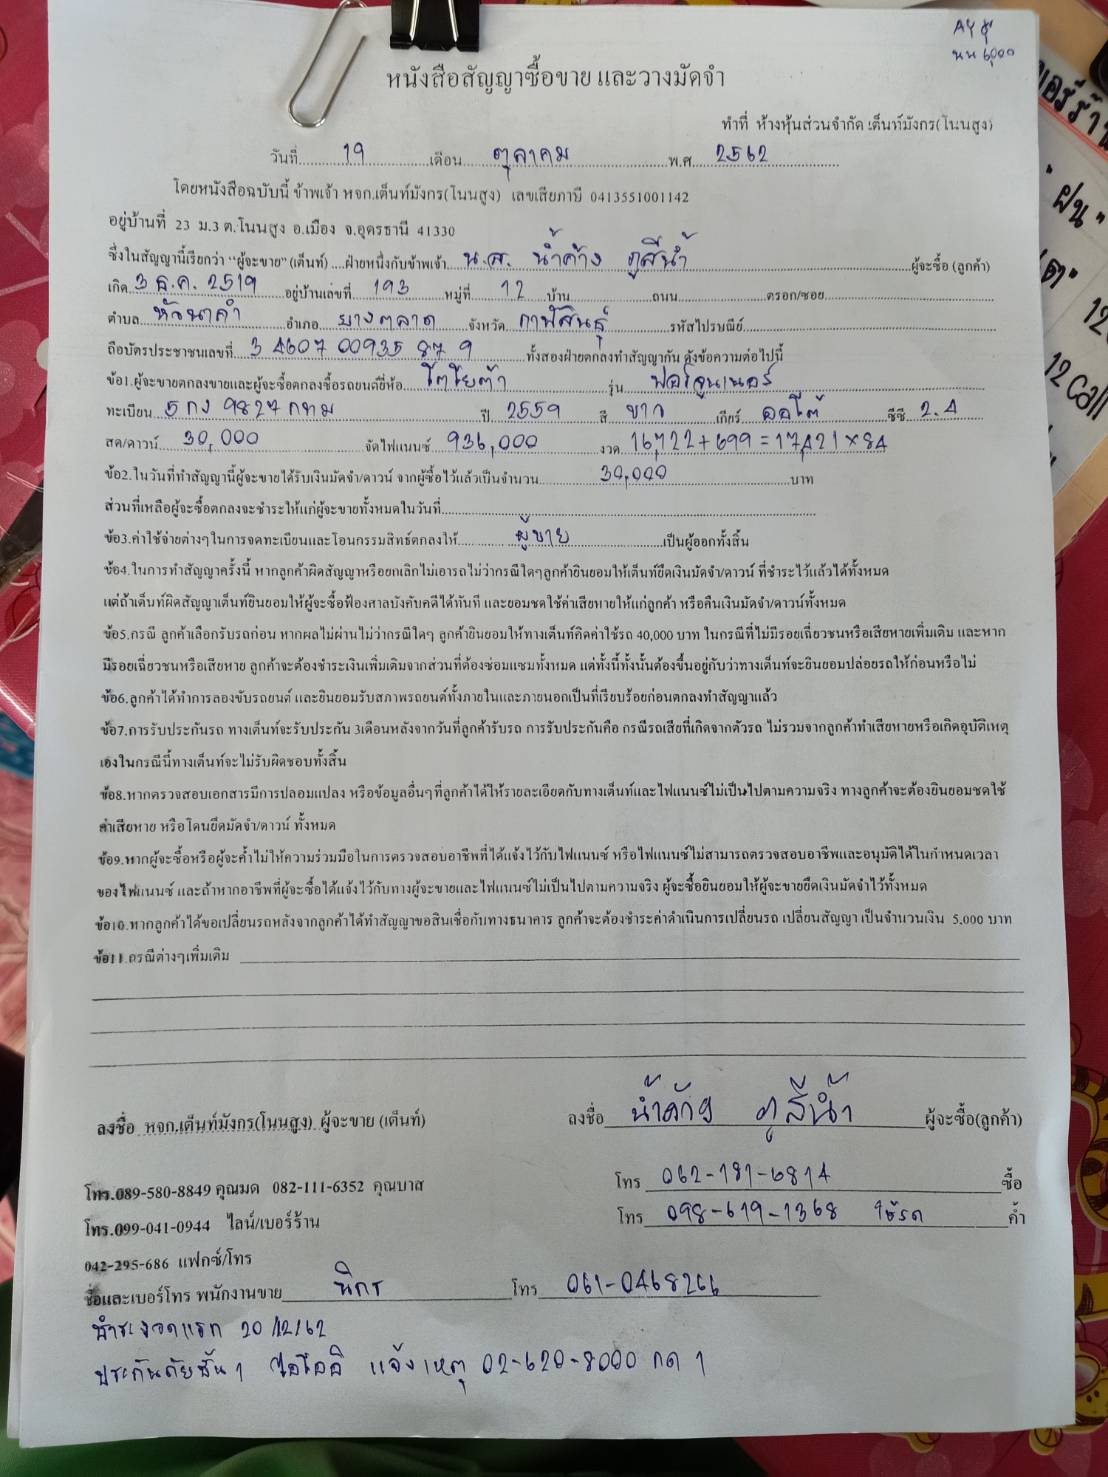 AY
นน 6,000
หนังสือสัญญาซื้อขาย และวางมัดจำ
ทำที่ ห้างหุ้นส่วนจำกัด เต็นท์มังกร(โนนสูง)
วันที่ 19 เดือน ตุลาคม พ.ศ 2562
โดยหนังสือฉบับนี้ ข้าพเจ้า หจก.เต็นท์มังกร(โนนสูง) เลขเสียภาษี 0413551001142
อยู่บ้านที่ 23 ม.3 ต.โนนสูง อ.เมือง จ.อุดรธานี 41330
ซึ่งในสัญญานี้เรียกว่า "ผู้จะขาย"(เต็นท์) ....ฝ่ายหนึ่งกับข้าพเจ้า น.ส. น้ำค้าง ภูสีน้ำ ผู้จะซื้อ (ลูกค้า)
เกิด 3 ธ.ค. 2519 อยู่บ้านเลขที่ 193 หมู่ที่ 12 บ้าน ถนน ตรอก/ซอย
ตำบล หัวนาคำ อำเภอ ยางตลาด จังหวัด กาฬสินธุ์ รหัสไปรษณีย์
ถือบัตรประชาชนเลขที่ 3 4607 00935 87 9 ทั้งสองฝ่ายตกลงทำสัญญากัน ดังข้อความต่อไปนี้
ข้อ1.ผู้จะขายตกลงขายและผู้จะซื้อตกลงซื้อรถยนต์ยี่ห้อ โตโยต้า รุ่น ฟอร์จูนเนอร์
ทะเบียน 5 กง 9827 กทม ปี 2559 สี ขาว เกียร์ ออโต้ ซีซี 2.4
สด/ดาวน์ 30,000 จัดไฟแนนซ์ 936,000 งวด 16,722+699=17,421×84
ข้อ2.ในวันที่ทำสัญญานี้ผู้จะขายได้รับเงินมัดจำ/ดาวน์ จากผู้ซื้อไว้แล้วเป็นจำนวน 30,000 บาท
ส่วนที่เหลือผู้จะซื้อตกลงจะชำระให้แก่ผู้จะขายทั้งหมดในวันที่
ข้อ3.ค่าใช้จ่ายต่างๆในการจดทะเบียนและโอนกรรมสิทธ์ตกลงให้ ผู้ขาย เป็นผู้ออกทั้งสิ้น
ข้อ4.ในการทำสัญญาครั้งนี้ หากลูกค้าผิดสัญญาหรือยกเลิกไม่เอารถไม่ว่ากรณีใดๆลูกค้ายินยอมให้เต็นท์ยึดเงินมัดจำ/ดาวน์ ที่ชำระไว้แล้วได้ทั้งหมด
แต่ถ้าเต็นท์ผิดสัญญาเต็นท์ยินยอมให้ผู้จะซื้อฟ้องศาลบังคับคดีได้ทันที และยอมชดใช้ค่าเสียหายให้แก่ลูกค้า หรือคืนเงินมัดจำ/ดาวน์ทั้งหมด
ข้อ5.กรณี ลูกค้าเลือกรับรถก่อน หากผลไม่ผ่านไม่ว่ากรณีใดๆ ลูกค้ายินยอมให้ทางเต็นท์คิดค่าใช้รถ 40,000 บาท ในกรณีที่ไม่มีรอยเฉี่ยวชนหรือเสียหายเพิ่มเติม และหาก
มีรอยเฉี่ยวชนหรือเสียหาย ลูกค้าจะต้องชำระเงินเพิ่มเติมจากส่วนที่ต้องซ่อมแซมทั้งหมด แต่ทั้งนี้ทั้งนั้นต้องขึ้นอยู่กับว่าทางเต็นท์จะยินยอมปล่อยรถให้ก่อนหรือไม่
ข้อ6.ลูกค้าได้ทำการลองขับรถยนต์ และยินยอมรับสภาพรถยนต์ทั้งภายในและภายนอกเป็นที่เรียบร้อยก่อนตกลงทำสัญญาแล้ว
ข้อ7.การรับประกันรถ ทางเต็นท์จะรับประกัน 3เดือนหลังจากวันที่ลูกค้ารับรถ การรับประกันคือ กรณีรถเสียที่เกิดจากตัวรถ ไม่รวมจากลูกค้าทำเสียหายหรือเกิดอุบัติเหตุ
เองในกรณีนี้ทางเต็นท์จะไม่รับผิดชอบทั้งสิ้น
ข้อ8.หากตรวจสอบเอกสารมีการปลอมแปลง หรือข้อมูลอื่นๆที่ลูกค้าได้ให้รายละเอียดกับทางเต็นท์และไฟแนนซ์ไม่เป็นไปตามความจริง ทางลูกค้าจะต้องยินยอมชดใช้
ค่าเสียหาย หรือโดนยึดมัดจำ/ดาวน์ ทั้งหมด
ข้อ9.หากผู้จะซื้อหรือผู้จะค้ำไม่ให้ความร่วมมือในการตรวจสอบอาชีพที่ได้แจ้งไว้กับไฟแนนซ์ หรือไฟแนนซ์ไม่สามารถตรวจสอบอาชีพและอนุมัติได้ในกำหนดเวลา
ของไฟแนนซ์ และถ้าหากอาชีพที่ผู้จะซื้อได้แจ้งไว้กับทางผู้จะขายและไฟแนนซ์ไม่เป็นไปตามความจริง ผู้จะซื้อยินยอมให้ผู้จะขายยึดเงินมัดจำไว้ทั้งหมด
ข้อ10.หากลูกค้าได้ขอเปลี่ยนรถหลังจากลูกค้าได้ทำสัญญาขอสินเชื่อกับทางธนาคาร ลูกค้าจะต้องชำระค่าดำเนินการเปลี่ยนรถ เปลี่ยนสัญญา เป็นจำนวนเงิน 5,000 บาท
ข้อ11.กรณีต่างๆเพิ่มเติม
ลงชื่อ หจก.เต็นท์มังกร(โนนสูง) ผู้จะขาย (เต็นท์) ลงชื่อ น้ำค้าง ภูสีน้ำ ผู้จะซื้อ(ลูกค้า)
โทร.089-580-8849 คุณมด 082-111-6352 คุณบาส โทร 062-191-6814 ซื้อ
โทร.099-041-0944 ไลน์/เบอร์ร้าน โทร 098-619-1368 ใช้รถ ค้ำ
042-295-686 แฟกซ์/โทร
ชื่อและเบอร์โทร พนักงานขาย นิกร โทร 061-0468266
ชำระงวดแรก 20/12/62
ประกันภัยชั้น 1 ไอโออิ แจ้งเหตุ 02-620-8000 กด 1
เบอร์ร้าน
"ฝน"
12 call